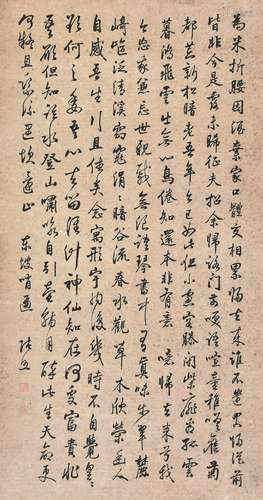 為米折腰因酒棄家口體交相累歸去來誰不遣君歸從前
皆非今是露未晞征夫招余歸路門前笑語喧童稚嗟舊菊
都荒新松暗老吾年今已如此但小窗容膝閉柴扉策杖看孤雲
暮鴻飛雲出無心鳥倦知還本非有意噫歸去來兮我
今忘我兼忘世親戚無浪語琴書中有真味步翠麓
崎嶇泛清溪窈窕涓涓暗谷流春水觀草木欣榮幽人
自感吾生行且休矣念寓形宇內復幾時不自覺皇皇
欲何之委吾心去留誰計神仙知在何處富貴非
吾願但知臨水登山嘯詠自引壺觴自醉此生天命更
何疑且乘流遇坎還止 東坡哨遍